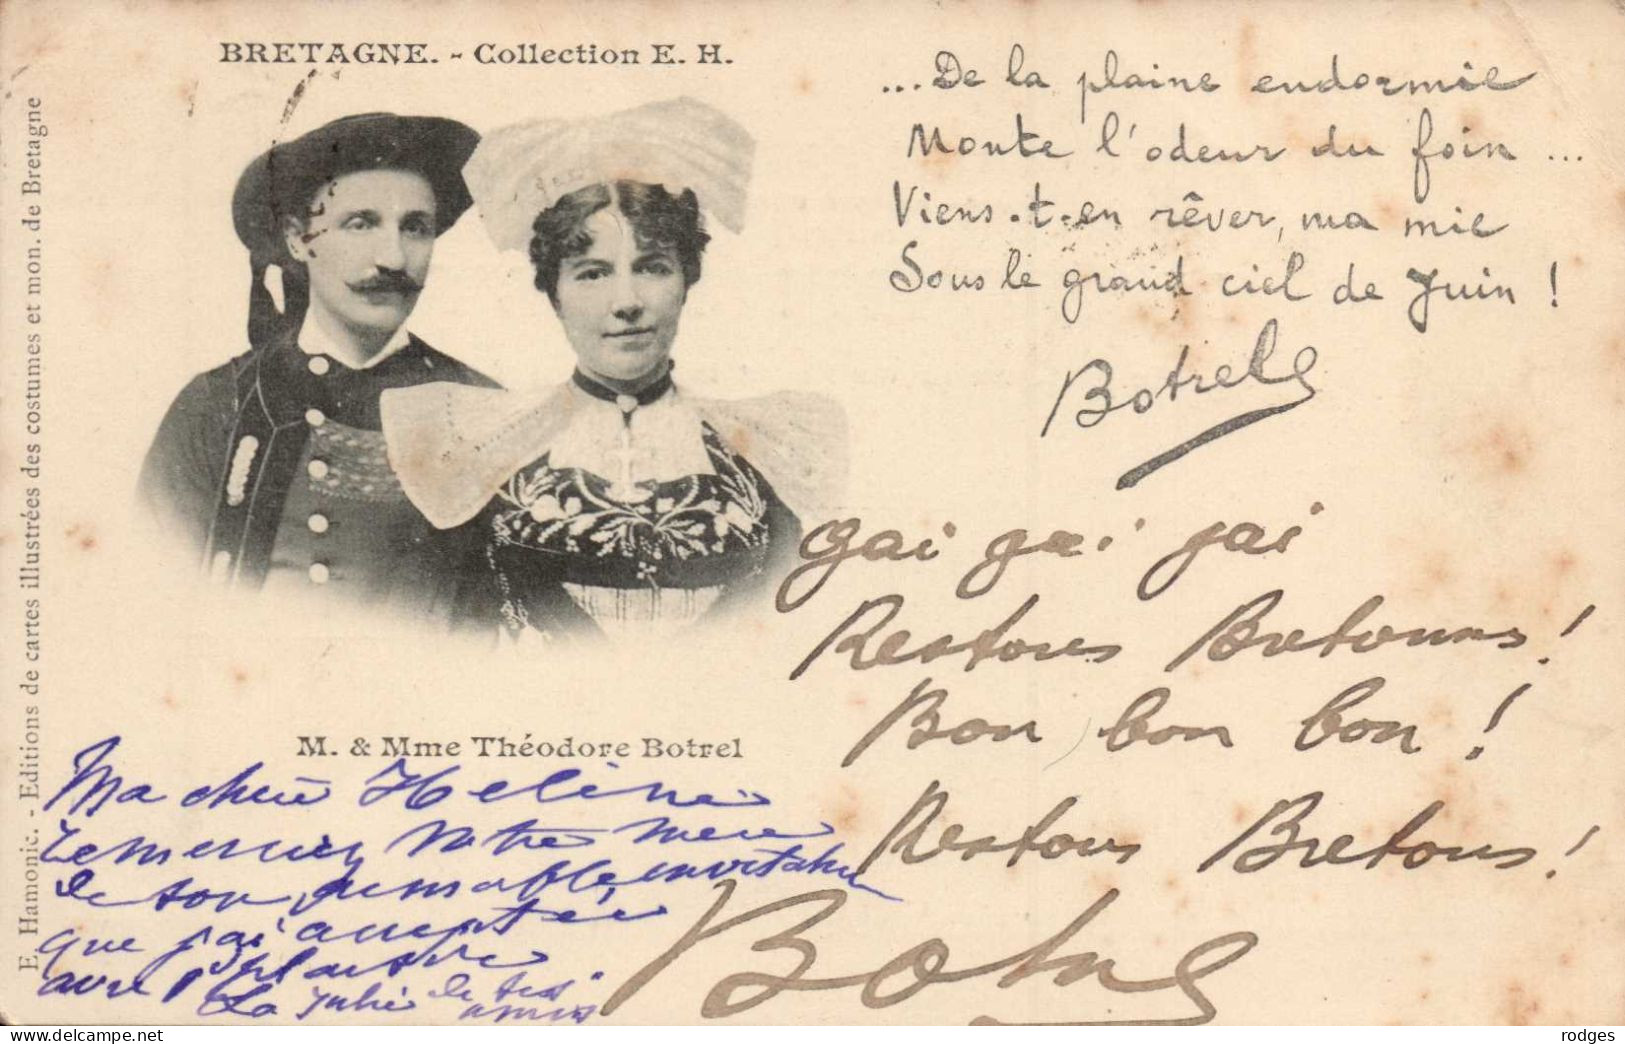 BRETAGNE. - Collection E. H.
E. Hamonic. - Editions de cartes illustrées des costumes et mon. de Bretagne
...De la plaine endormie
Monte l'odeur du foin ...
Viens-t-en rêver, ma mie
Sous le grand ciel de Juin !
Botrel
gai gai gai
Restons Bretonnes !
Bon bon bon !
Restons Bretons !
Botrel
M. & Mme Théodore Botrel
Ma chère Helène
remerciez notre mère
de son aimable invitation
que j'ai acceptée
avec plaisir
La Julie de tes
amies
rodges